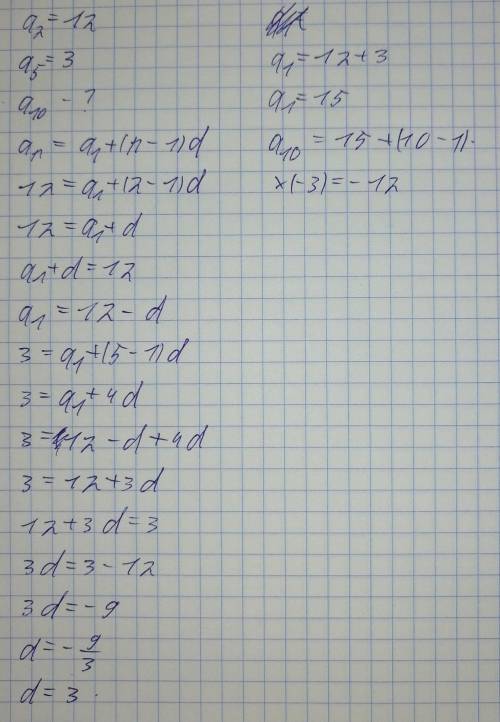 a₂ = 12
a₅ = 3
a₁₀ - ?
aₙ = a₁ + (n - 1)d
12 = a₁ + (2 - 1)d
12 = a₁ + d
a₁ + d = 12
a₁ = 12 - d
3 = a₁ + (5 - 1)d
3 = a₁ + 4d
3 = 12 - d + 4d
3 = 12 + 3d
12 + 3d = 3
3d = 3 - 12
3d = -9
d = -9/3
d = 3
a₁ = 12 + 3
a₁ = 15
a₁₀ = 15 + (10 - 1)·
×(-3) = -12